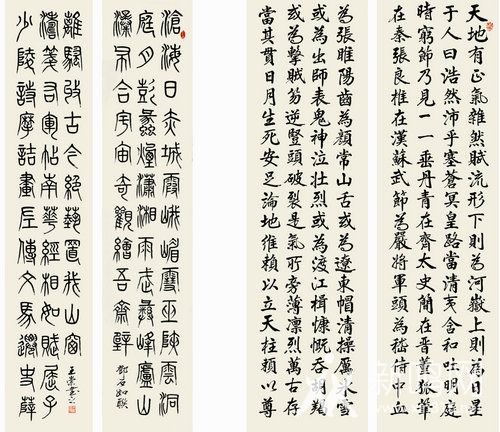 天地有正氣雜然賦流形下則為河嶽上則為日星
于人曰浩然沛乎塞蒼冥皇路當清夷含和吐明庭
時窮節乃見一一垂丹青在齊太史簡在晋董狐筆
在秦張良椎在漢蘇武節為嚴將軍頭為嵇侍中血
為張睢陽齒為顏常山舌或為遼東帽清操厲冰雪
或為出師表鬼神泣壯烈或為渡江楫慷慨吞胡羯
或為擊賊笏逆豎頭破裂是氣所旁薄凛烈萬古存
當其貫日月生死安足論地維賴以立天柱賴以尊
滄海日赤城霞峨嵋雪巫陝雲洞
庭月彭蠡煙瀟湘雨武彝峰廬山
瀑布合宇宙奇觀繪吾齋壁
鄧石如聯
少陵詩摩詰畫左傳文馬遷史薛
濤箋右軍帖南華經相如賦屈子
離騷收古今絕藝置我山窗
新闻网